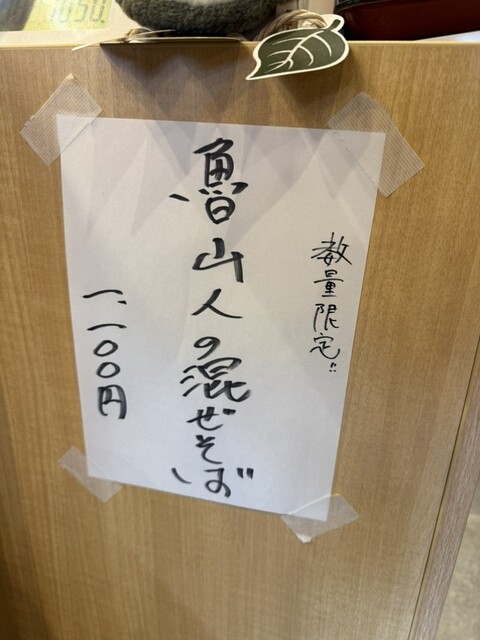 数量限定!!
魯山人の混ぜそば
一、一〇〇円